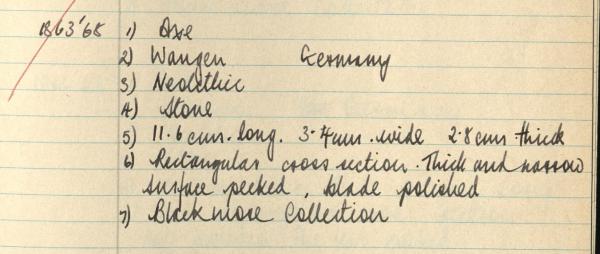 B63'68 1) Axe
2) Wangen Germany
3) Neolithic
4) Stone
5) 11.6 cms. long. 3.4cms. wide 2.8 cms thick
6) Rectangular cross section. Thick and narrow
surface pecked, blade polished
7) Blackmore Collection